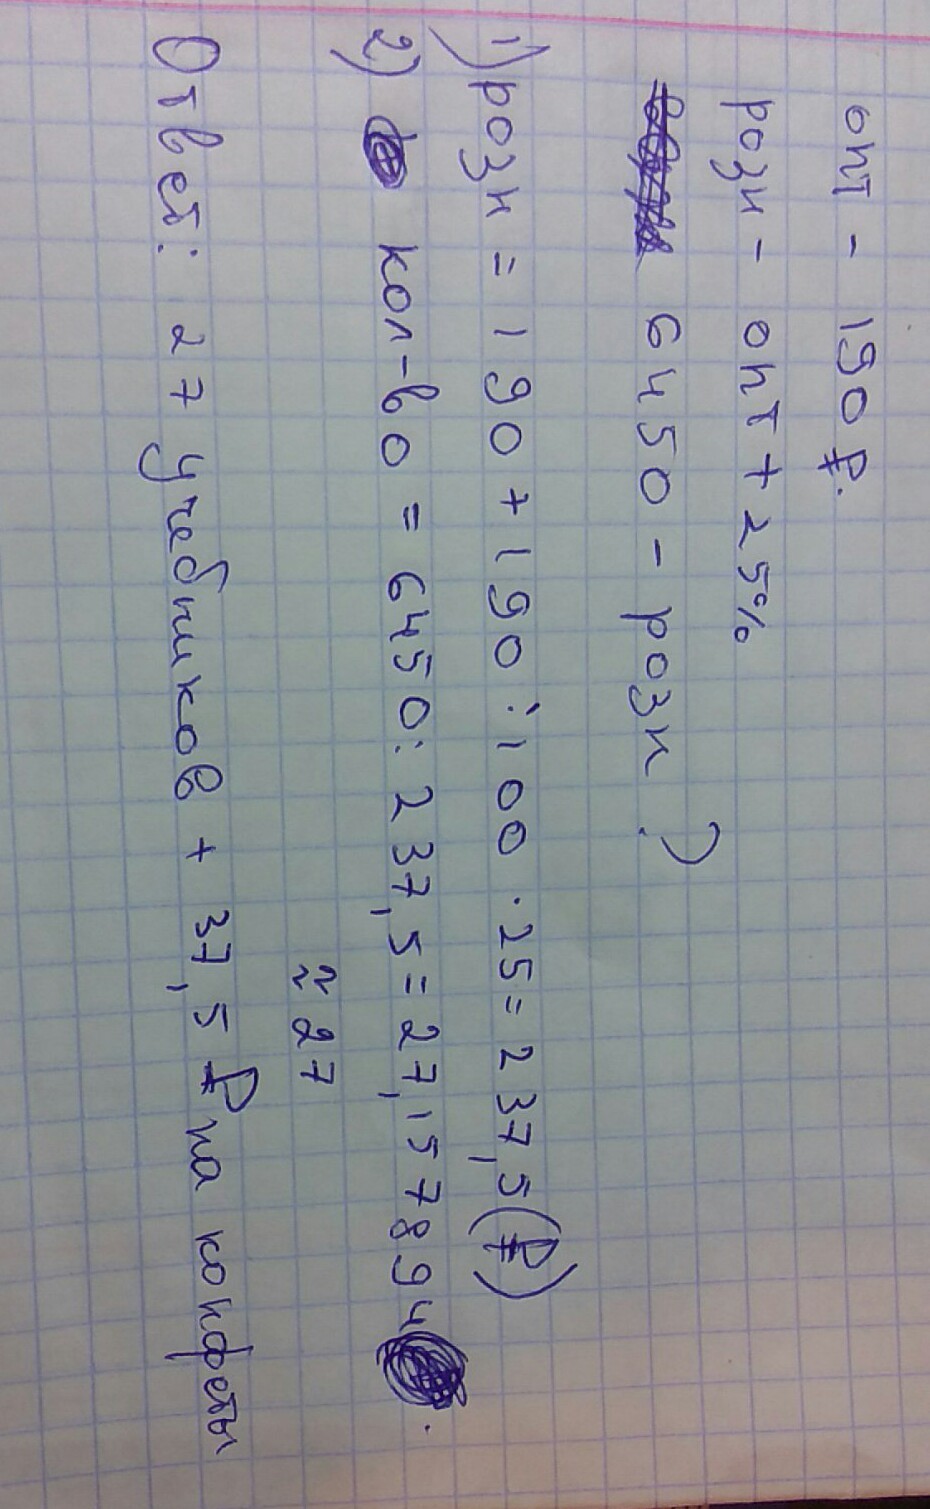 опт - 190 ₽.
розн - опт + 25%
6450 - розн ?
1) розн = 190 + 190 : 100 · 25 = 237,5 (₽)
2) кол-во = 6450 : 237,5 = 27,157894.
≈ 27
Ответ: 27 учебников + 37,5 ₽ на конфеты